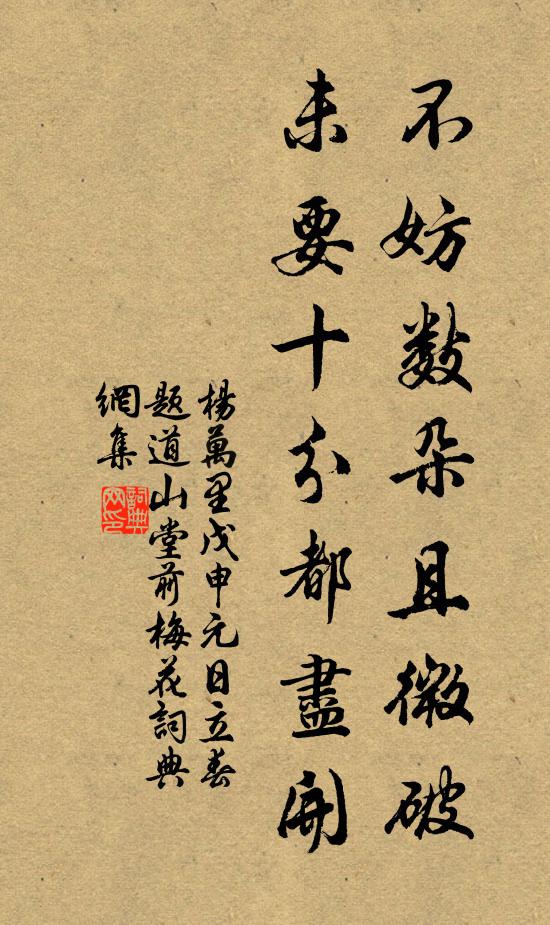 不妨數朵且微破
未要十分都盡開
楊萬里戊申元日立春
題道山堂前梅花詞典
網集
詞典
网印